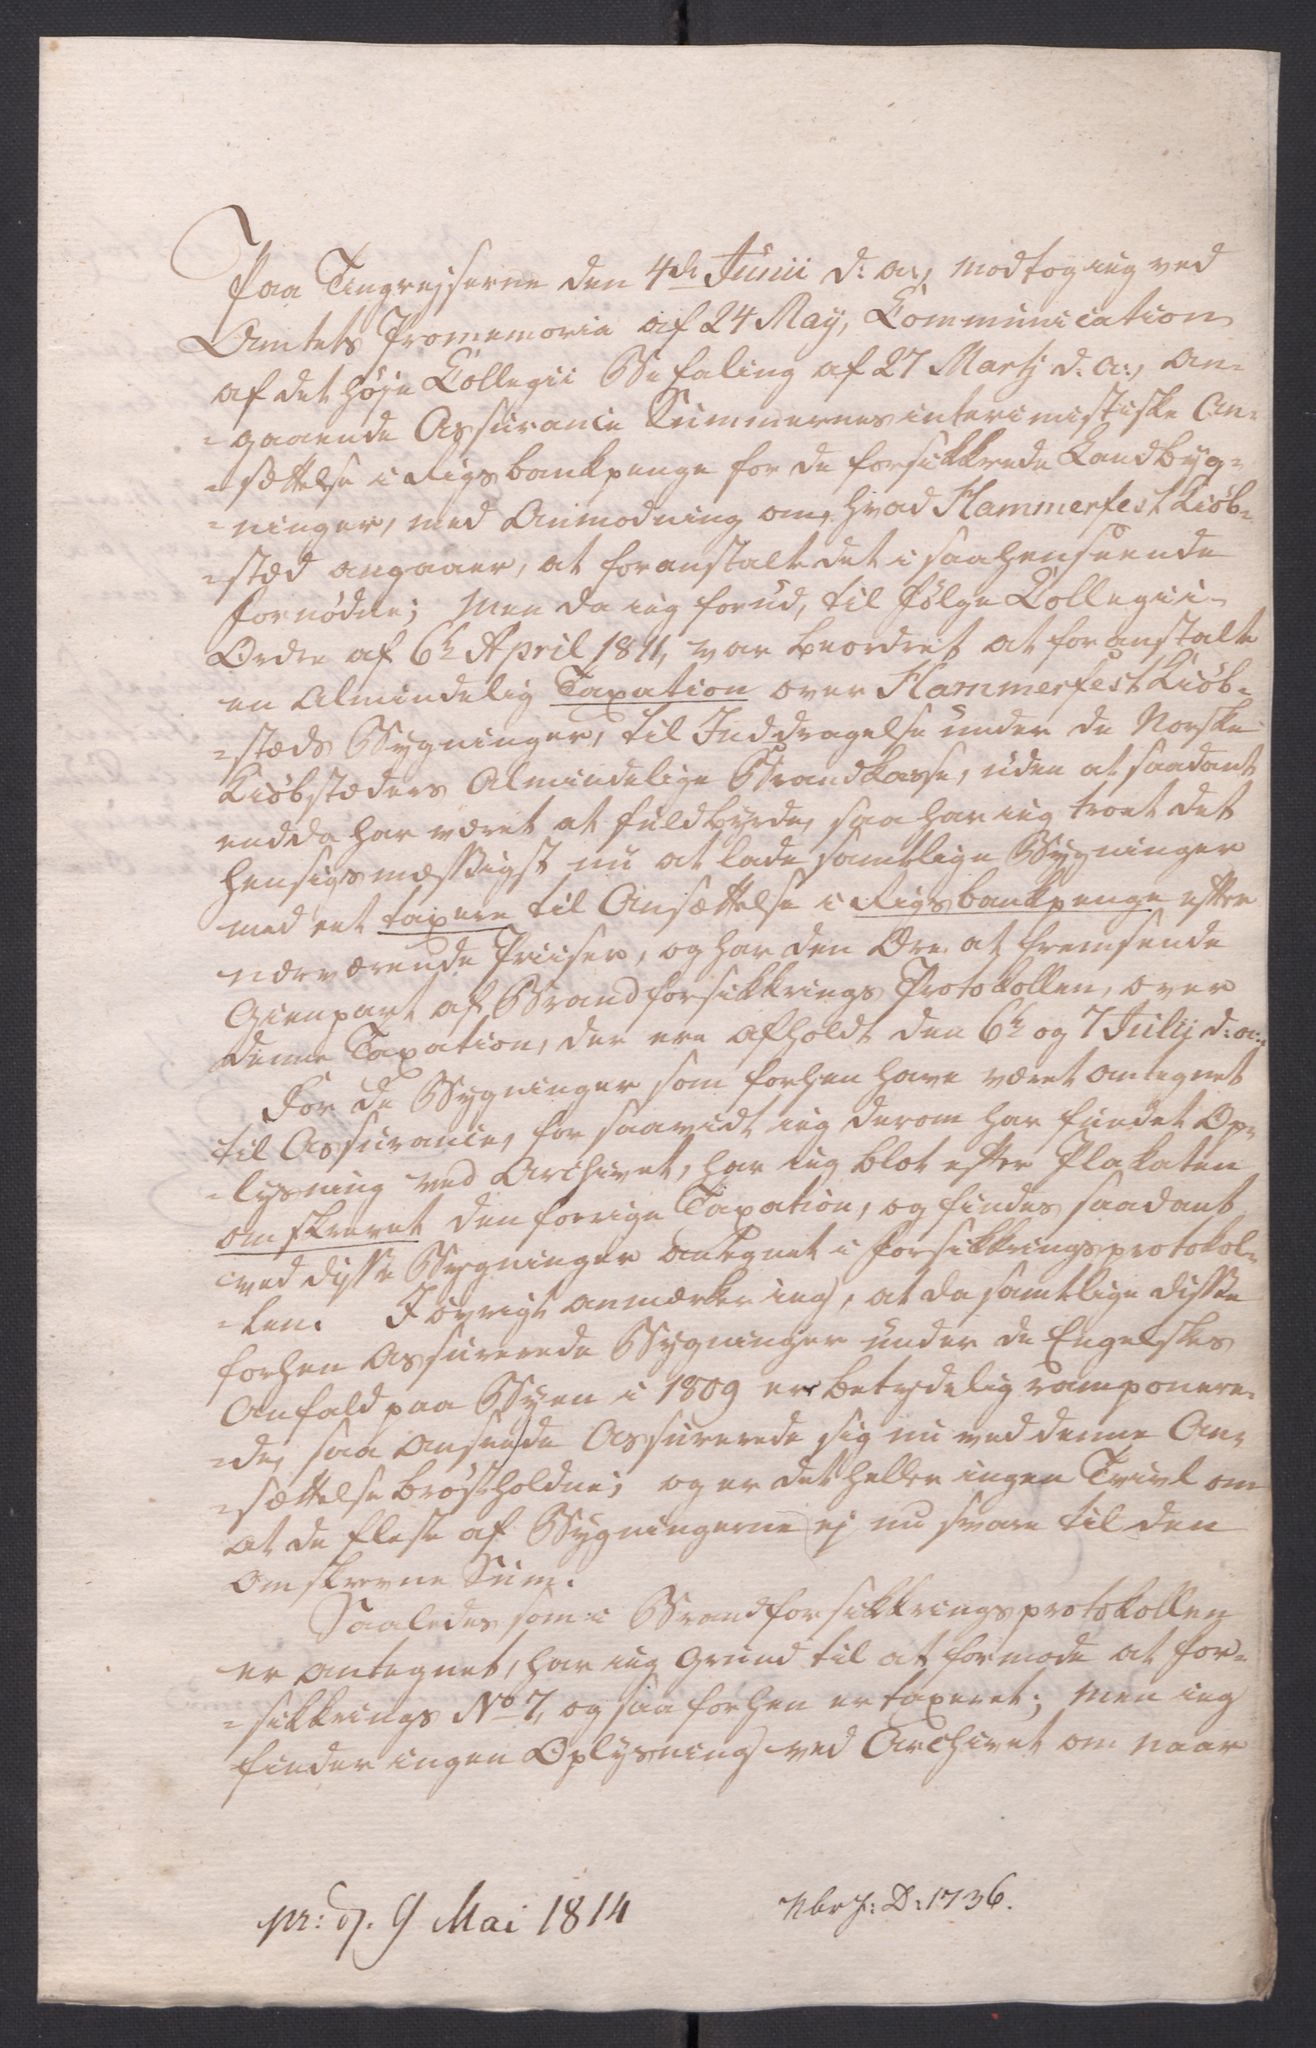 Paa Tingrejserne den 4de Junii d: a:, modtog ieg ved
Amtets Promemoria af 24 May, Communication
af det høje Collegii Befaling af 27 Martj d: a:, an-
-gaaende Assurance Summernes interimistiske An-
-sættelse i Rigsbankpenge for de forsikkrede Landbyg-
-ninger, med Anmodning om, hvad Hammerfest Kiöb-
-stæd angaaer, at foranstalte det i saahenseende
fornødne; Men da ieg forud, til følge Collegii
Ordre af 6te April 1811, var beordret at foranstalte
en Almindelig Taxation over Hammerfest Kiöb-
-stæds Bygninger, til Inddragelse under de Norske
Kiöbstæders Almindelige Brandkasse, uden at saadant
endda har været at fuldbyrde, saa har ieg troet det
hensigsmæssigst nu at lade samtlige Bygninger
med eet taxere til Ansættelse i Rigsbankpenge efter
nærværende Priiser, og har den Ære at fremsende
Gienpart af Brandforsikkrings Protokollen, over
denne Taxation, der ere afholdt den 6te og 7 Julij d: a:,
For de Bygninger som forhen have været antegnet
til Assurance, for saavidt ieg derom har fundet Op-
-lysning ved Archivet, har ieg blot efter Plakaten
omskrevet den forrige Taxation, og findes saadant
ved disse Bygninger antegnet i forsikkringsprotokol-
-len. I øvrigt anmærker ieg, at da samtlige disse
forhen Assurerede Bygninger under de Engelskes
Anfald paa Byen i 1809 er betydelig ramponere-
-de, saa ansee de Assurerede sig nu ved denne An-
-sættelse brøstholdne; og er det heller ingen Tvivl om
at de fleste af Bygningerne ej nu svare til den
omskrevne Sum.
Saaledes som i Brandforsikkringsprotokollen
er antegnet, har ieg Grund til at formode at for-
-sikkrings No 7, og saa forhen er taxeret; men ieg
finder ingen Oplysning ved Archivet om naar
pr: d. 9 Mai 1814
Nbr J: D: 1736.